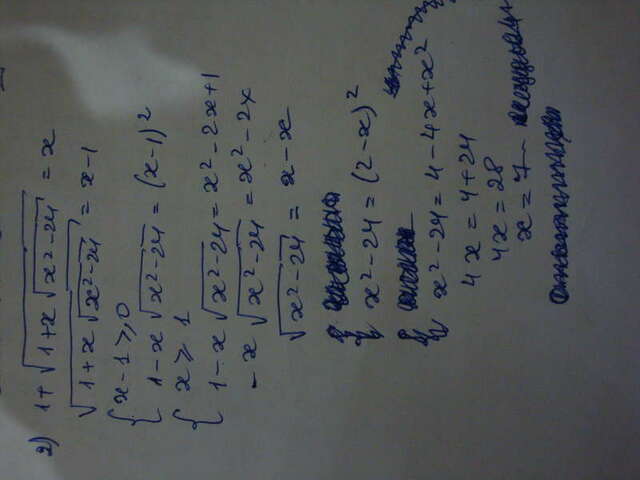 2) 1+√(1+x√(x²-24)) = x
√(1+x√(x²-24)) = x-1
{ x-1⩾0
1-x√(x²-24) = (x-1)²
{ x⩾1
1-x√(x²-24) = x²-2x+1
-x√(x²-24) = x²-2x
√(x²-24) = 2-x
x²-24 = (2-x)²
x²-24 = 4-4x+x²
4x = 4+24
4x = 28
x = 7-